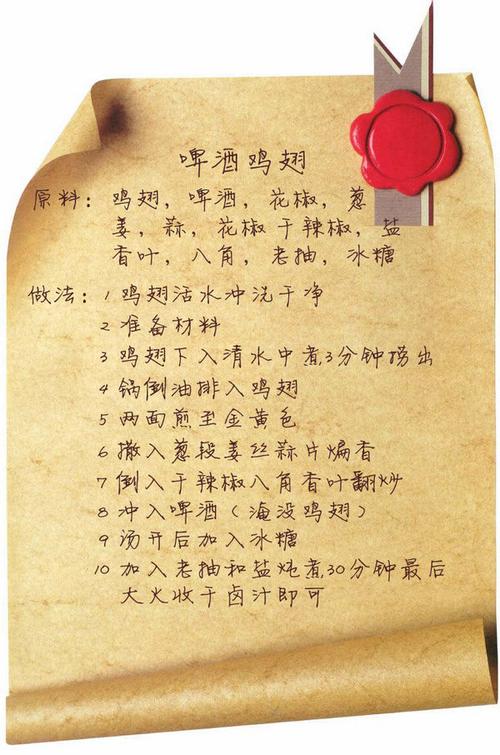 啤酒鸡翅
原料：鸡翅，啤酒，花椒，葱
姜，蒜，花椒干辣椒，盐
香叶，八角，老抽，冰糖
做法：1 鸡翅活水冲洗干净
2 准备材料
3 鸡翅下入清水中煮3分钟捞出
4 锅倒油排入鸡翅
5 两面煎至金黄色
6 撒入葱段姜丝蒜片煸香
7 倒入干辣椒八角香叶翻炒
8 冲入啤酒（淹没鸡翅）
9 汤开后加入冰糖
10 加入老抽和盐炖煮30分钟最后
大火收干卤汁即可